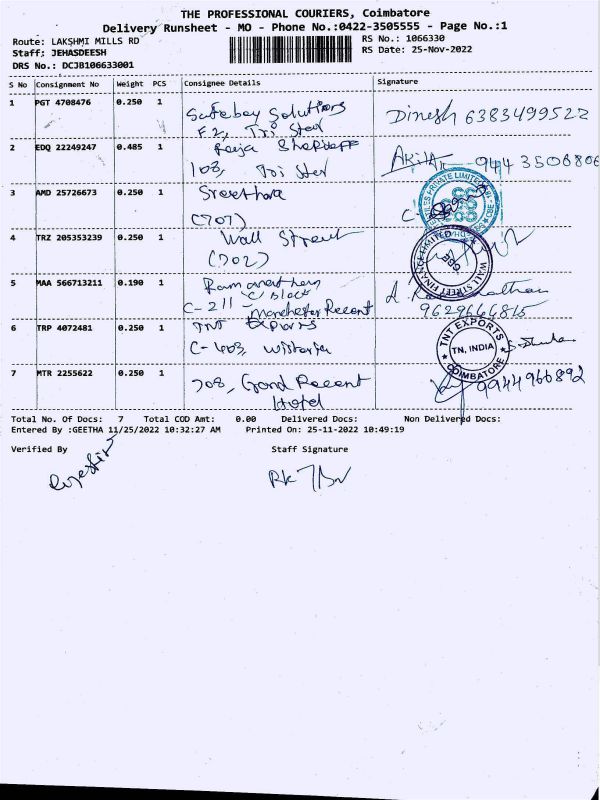 THE PROFESSIONAL COURIERS, Coimbatore
Delivery Runsheet - MO - Phone No.:0422-3505555 - Page No.:1
Route: LAKSHMI MILLS RD
RS No.: 1066330
Staff: JEHASDEESH
RS Date: 25-Nov-2022
DRS No.: DCJB106633001
S No Consignment No Weight PCS Consignee Details Signature
1 PGT 4708476 0.250 1 Safebay Solutions Dinesh 6383499522
F2, Tri Star
2 EDQ 22249247 0.485 1 Raja
108, Tri Star
3 AMD 25726673 0.250 1 Sreethara
(707)
4 TRZ 205353239 0.250 1 Wall Street
(702) WALL STREET FINANCE LIMITED
5 MAA 566713211 0.190 1
C-211 'C' Block Manchester Recent 9629666815
6 TRP 4072481 0.250 1 TNT Exports TNT EXPORTS
C-403, Wistaria TN, INDIA
COIMBATORE
7 MTR 2255622 0.250 1 708, Grand Recent 9944966892
Hotel
Total No. Of Docs: 7 Total COD Amt: 0.00 Delivered Docs: Non Delivered Docs:
Entered By :GEETHA 11/25/2022 10:32:27 AM Printed On: 25-11-2022 10:49:19
Verified By Staff Signature